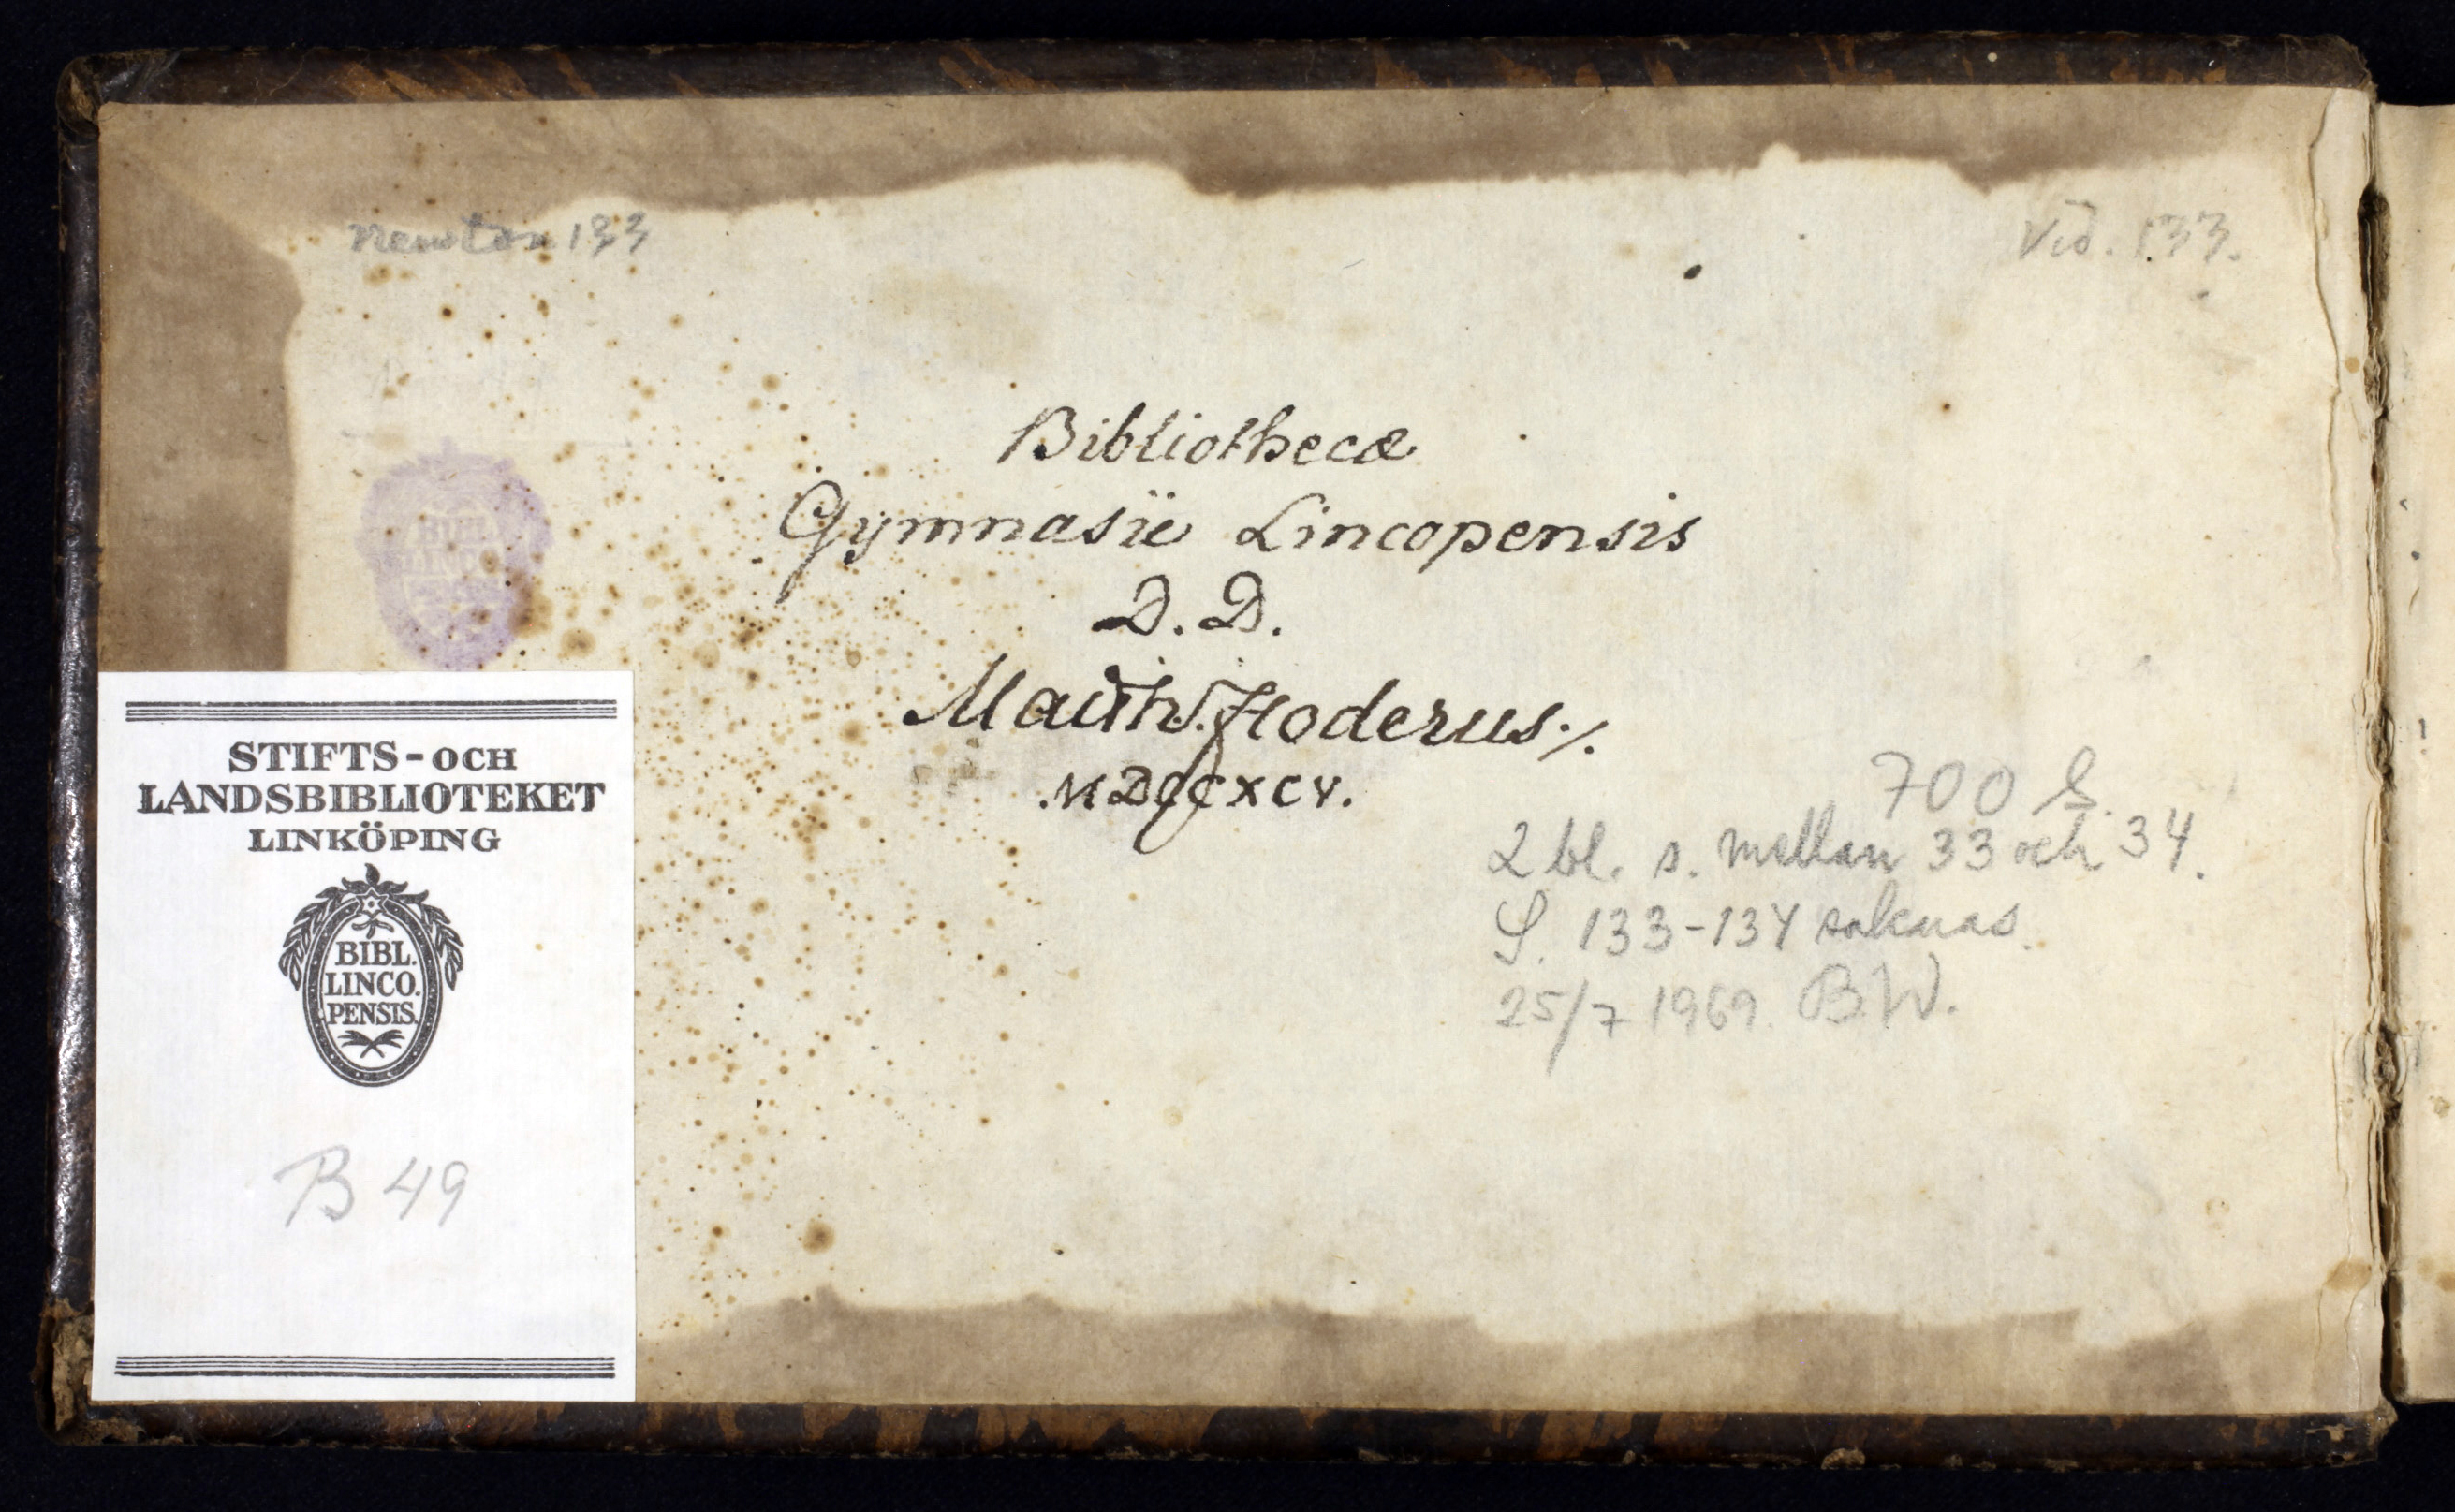 Newton 133
Vid. 133.
Bibliothecæ
Gymnasii Lincopensis
D. D.
Matth. Hoderus./.
MDCCXCV.
BIBL.
LINCO.
700 S.
2 bl. s. mellan 33 och 34.
S. 133-134 saknas.
25/7 1969. B.W.
STIFTS-OCH
LANDSBIBLIOTEKET
LINKÖPING
BIBL.
LINCO.
PENSIS.
B 49